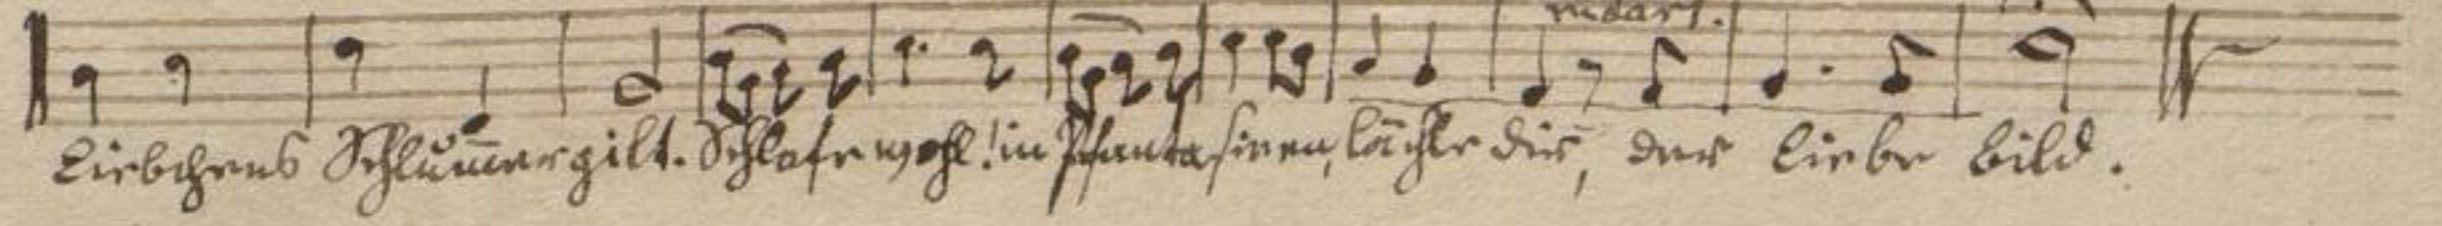 ritard.
Liebchens Schlum̅er gilt. Schlafe wohl! in Phantasieen, lächle dir, der Liebe Bild.